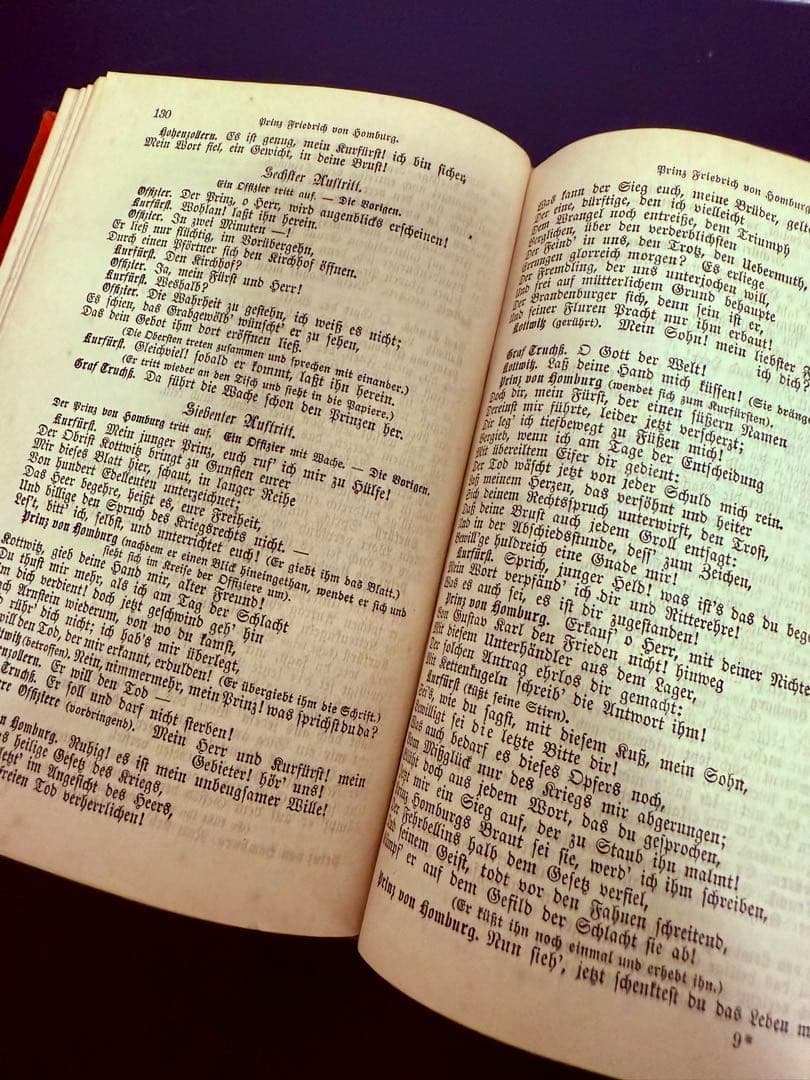 130
Prinz Friedrich von Homburg.
Hohenzollern. Es ist genug, mein Kurfürst! ich bin sicher,
Mein Wort fiel, ein Gewicht, in deine Brust!
Sechster Auftritt.
Ein Offizier tritt auf. — Die Vorigen.
Offizier. Der Prinz, o Herr, wird augenblicks erscheinen!
Kurfürst. Wohlan! laßt ihn herein.
Offizier. In zwei Minuten —!
Er ließ nur flüchtig, im Vorübergehn,
Durch einen Pförtner sich den Kirchhof öffnen.
Kurfürst. Den Kirchhof?
Offizier. Ja, mein Fürst und Herr!
Kurfürst. Weshalb?
Offizier. Die Wahrheit zu gestehn, ich weiß es nicht;
Es schien, das Grabgewölb' wünscht' er zu sehen,
Das dein Gebot ihm dort eröffnen ließ.
(Die Obersten treten zusammen und sprechen mit einander.)
Kurfürst. Gleichviel! sobald er kommt, laßt ihn herein.
(Er tritt wieder an den Tisch und sieht in die Papiere.)
Graf Truchß. Da führt die Wache schon den Prinzen her.
Siebenter Auftritt.
Der Prinz von Homburg tritt auf. Ein Offizier mit Wache. — Die Vorigen.
Kurfürst. Mein junger Prinz, euch ruf' ich mir zu Hülfe!
Der Obrist Kottwitz bringt zu Gunsten eurer
Mir dieses Blatt hier, schaut, in langer Reihe
Von hundert Edelleuten unterzeichnet;
Das Heer begehre, heißt es, eure Freiheit,
Und billige den Spruch des Kriegsrechts nicht. —
Lest, bitt' ich, selbst, und unterrichtet euch! (Er giebt ihm das Blatt.)
Prinz von Homburg (nachdem er einen Blick hineingethan, wendet er sich und
sieht sich im Kreise der Offiziere um).
Kottwitz, gieb deine Hand mir, alter Freund!
Du thust mir mehr, als ich am Tag der Schlacht
dich verdient! doch jetzt geschwind geh' hin
Arnstein wiederum, von wo du kamst,
rühr' dich nicht; ich hab's mir überlegt,
will den Tod, der mir erkannt, erdulden! (Er übergiebt ihm die Schrift.)
(betroffen). Nein, nimmermehr, mein Prinz! was sprichst du da?
Er will den Tod —
Truchß. Er soll und darf nicht sterben!
Offiziere (vordringend). Mein Herr und Kurfürst! mein
Gebieter! hör' uns!
Homburg. Ruhig! es ist mein unbeugsamer Wille!
heilige Gesetz des Kriegs,
im Angesicht des Heers,
freien Tod verherrlichen!
Prinz Friedrich von Homburg
Was kann der Sieg euch, meine Brüder,
Der eine, dürftige, den ich vielleicht
Dem Wrangel noch entreiße, dem Triumph
Verglichen, über den verderblichsten
Der Feind' in uns, den Trotz, den Uebermuth,
Errungen glorreich morgen? Es erliege
Der Fremdling, der uns unterjochen will,
Und frei auf mütterlichem Grund behaupte
Der Brandenburger sich, denn sein ist er,
Und seiner Fluren Pracht nur ihm erbaut!
Kottwitz (gerührt). Mein Sohn! mein liebster
ich dich?
Graf Truchß. O Gott der Welt!
Kottwitz. Laß deine Hand mich küssen! (Sie
Prinz von Homburg (wendet sich zum Kurfürsten).
Doch dir, mein Fürst, der einen süßern Namen
Dereinst mir führte, leider jetzt verscherzt;
Dir leg' ich tiefbewegt zu Füßen mich!
Vergieb, wenn ich am Tage der Entscheidung
Mit übereiltem Eifer dir gedient:
Der Tod wäscht jetzt von jeder Schuld mich rein.
Laß meinem Herzen, das versöhnt und heiter
Sich deinem Rechtsspruch unterwirft, den Trost,
Daß deine Brust auch jedem Groll entsagt:
Und in der Abschiedsstunde, deß' zum Zeichen,
Bewill'ge huldreich eine Gnade mir!
Kurfürst. Sprich, junger Held! was ist's das du
Mein Wort verpfänd' ich dir und Ritterehre!
Was es auch sei, es ist dir zugestanden!
Prinz von Homburg. Erkauf' o Herr, mit deiner Nichte
Von Gustav Karl den Frieden nicht! hinweg
Mit diesem Unterhändler aus dem Lager,
Der solchen Antrag ehrlos dir gemacht:
Mit Kettenkugeln schreib' die Antwort ihm!
Kurfürst (küßt seine Stirn).
Sei's, wie du sagst, mit diesem Kuß, mein Sohn,
Bewilligt sei die letzte Bitte dir!
Was auch bedarf es dieses Opfers noch,
Dem Mißglück nur des Kriegs mir abgerungen;
Blüht doch aus jedem Wort, das du gesprochen,
Jetzt mir ein Sieg auf, der zu Staub ihn malmt!
Prinz Homburgs Braut sei sie, werd' ich ihm schreiben,
Der Fehrbellins halb dem Gesetz verfiel,
seinem Geist, todt vor den Fahnen schreitend,
er auf dem Gefild der Schlacht sie ab!
(Er küßt ihn noch einmal und erhebt ihn.)
Prinz von Homburg. Nun sieh', jetzt schenktest du das Leben
9*